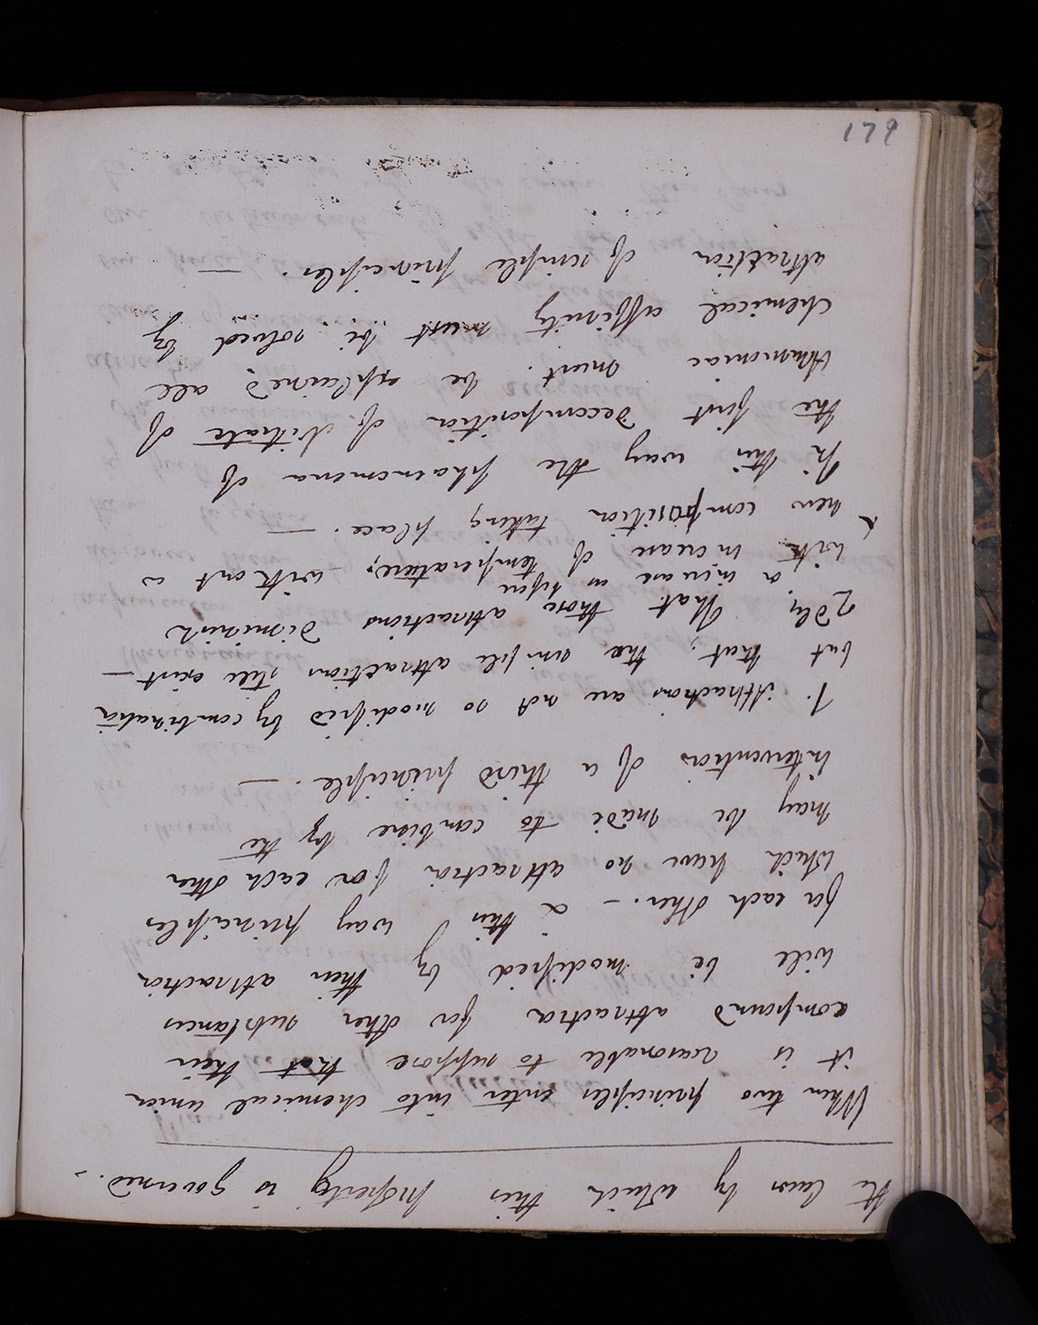 179
the laws by which this property is governed. -
When two principles enter into chemical union
it is reasonable to suppose that their
compound attraction for other substances
will be modified by their attraction
for each other. - in this way principles
which have no attraction for each other
may be made to combine by the
intervention of a third principle. -
1. Attractions are not so modified by combination
but that, the simple attractions still exist -
2dly That those attractions diminish
or increase or
with increase of temperature, without a
new composition taking place. -
In this way the phaenomena of
the first decomposition of Nitrate of
Ammoniac must be explained all
chemical affinity must be solved by
attraction of simple principles. -